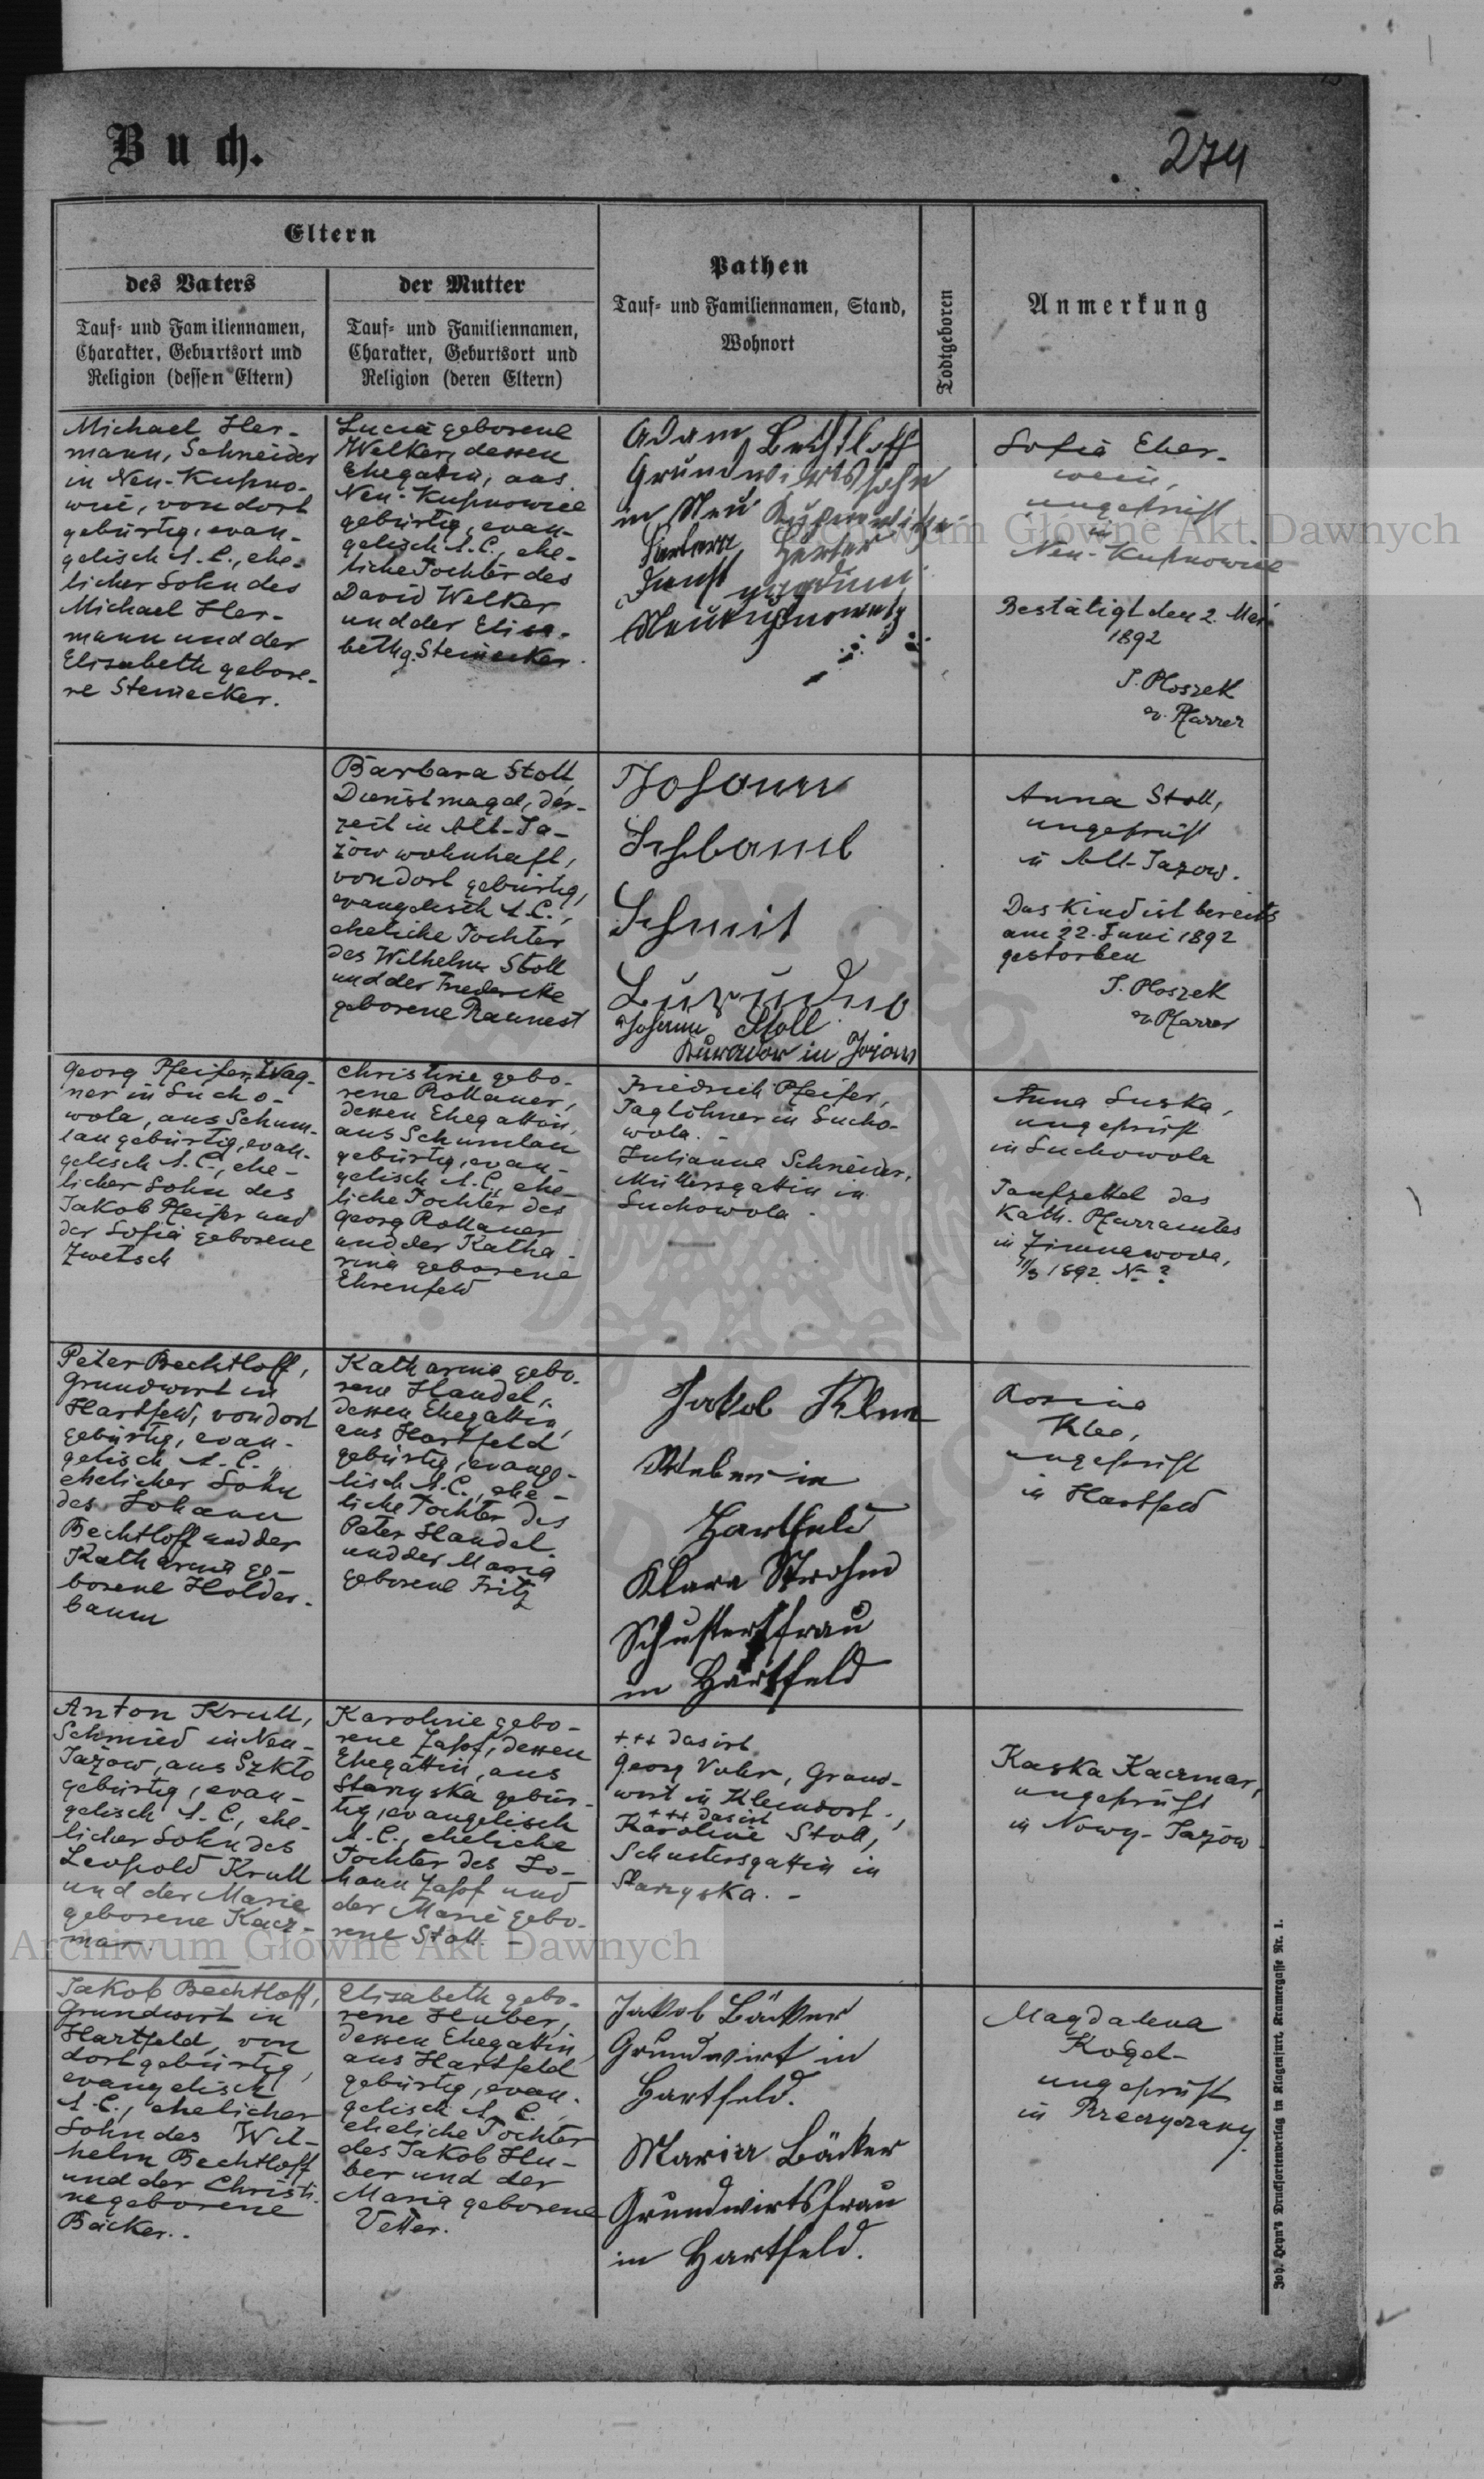 Buch.
274
Eltern
des Vaters
Tauf- und Familiennamen,
Charakter, Geburtsort und
Religion (dessen Eltern)
der Mutter
Tauf- und Familiennamen,
Charakter, Geburtsort und
Religion (deren Eltern)
Pathen
Tauf- und Familiennamen, Stand,
Wohnort
Todtgeboren
Anmerkung
Michael Her-
mann, Schneider
in Neu-Kupno-
wice, von dort
gebürtig, evan-
gelisch A. C., ehe-
licher Sohn des
Michael Her-
mann und der
Elisabeth gebore-
ne Steinecker.
Lucia geborene
Welker, dessen
Ehegattin, aus
Neu-Kupnowice
gebürtig, evan-
gelisch A. C., ehe-
liche Tochter des
David Welker
und der Elisa-
beth g. Steinecker.
Adam Bechtloff
Grundwirtssohn
in Neu
Barbara
Sofia Eber-
wein,
ungeprüft
in
Neu-Kupnowice
Bestätigt den 2. Mai
1892
J. Ploszek
ev. Pfarrer
Barbara Stoll,
Dienstmagd, der-
zeit in Alt-Ja-
zow wohnhaft,
von dort gebürtig,
evangelisch A. C.,
eheliche Tochter
des Wilhelm Stoll
und der Friedericke
geborene Raunest
Johann
Schmit
Johann Stoll
Kurator in Jazow
Anna Stoll,
ungeprüft
in Alt-Jazow.
Das Kind ist bereits
am 22. Juni 1892
gestorben
J. Ploszek
ev. Pfarrer
Georg Pfeifer, Wag-
ner in Sucho-
wola, aus Schum-
lau gebürtig, evan-
gelisch A. C., ehe-
licher Sohn des
Jakob Pfeifer und
der Sofia geborene
Zwetsch
Christine gebo-
rene Rollauer,
dessen Ehegattin,
aus Schumlau
gebürtig, evan-
gelisch A. C., ehe-
liche Tochter des
Georg Rollauer
und der Katha-
rina geborene
Ehrenfeld
Friedrich Pfeifer,
Taglöhner in Sucho-
wola. -
Julianna Schneider,
Müllersgattin in
Suchowola. -
Anna Suska,
ungeprüft
in Suchowola
Taufzettel des
Kath. Pfarramtes
in Zimnawoda,
11/3 1892. No ?
Peter Bechtloff,
Grundwirt in
Hartfeld, von dort
gebürtig, evan-
gelisch A. C.,
ehelicher Sohn
des Johann
Bechtloff und der
Katharina ge-
borene Holder-
baum
Katharina gebo-
rene Handel,
dessen Ehegattin,
aus Hartfeld
gebürtig, evange-
lisch A. C., ehe-
liche Tochter des
Peter Handel
und der Maria
geborene Fritz
Jakob
Weber in
Hartfeld
Klara Strohm
Schustersfrau
in Hartfeld
Rosina
Klee,
ungeprüft
in Hartfeld
Anton Krull,
Schmied in Neu-
Jazow, aus Szkło
gebürtig, evan-
gelisch A. C., ehe-
licher Sohn des
Leopold Krull
und der Marie
geborene Kacz-
mar.
Karoline gebo-
rene Zapf, dessen
Ehegattin, aus
Starzyska gebür-
tig, evangelisch
A. C., eheliche
Tochter des Jo-
hann Zapf und
der Marie gebo-
rene Stoll. -
+++ das ist
Georg Vohr, Grund-
wirt in Kleindorf.,
+++ das ist
Karoline Stoll,
Schustersgattin in
Starzyska. -
Kaska Kaczmar,
ungeprüft
in Nowy-Jazow
Jakob Bechtloff,
Grundwirt in
Hartfeld, von
dort gebürtig,
evangelisch
A. C., ehelicher
Sohn des Wil-
helm Bechtloff
und der Christi-
ne geborene
Bäcker..
Elisabeth gebo-
rene Huber,
dessen Ehegattin
aus Hartfeld
gebürtig, evan-
gelisch A. C.,
eheliche Tochter
des Jakob Hu-
ber und der
Maria geborene
Vetter.
Jakob Bäcker
Grundwirt in
Hartfeld.
Maria Bäcker
Grundwirtsfrau
in Hartfeld.
Magdalena
Kogel-
ungeprüft
in Przedrzany
Joh. Heyn's Drucksortenverlag in Klagenfurt, Kramergasse Nr. 1.
Archiwum Główne Akt Dawnych
Archiwum Główne Akt Dawnych